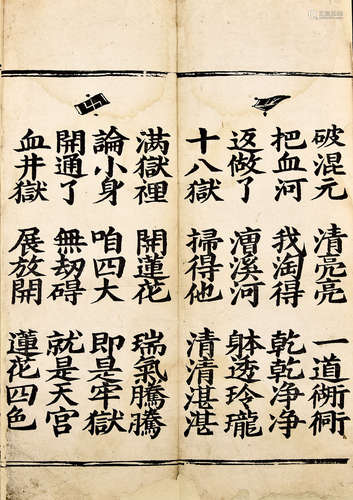 破混元 清亮亮 一道衚衕
把血河 我淘得 乾乾净净
返做了 漕溪河 躰透玲瓏
十八獄 掃得他 清清湛湛
满獄裡 開蓮花 瑞氣騰騰
論小身 咱四大 即是牢獄
開通了 無刼碍 就是天宫
血井獄 展放開 蓮花四色